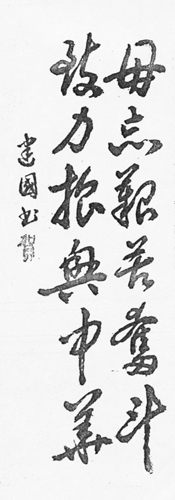 毋忘艱苦奮斗
致力振興中華
建國书